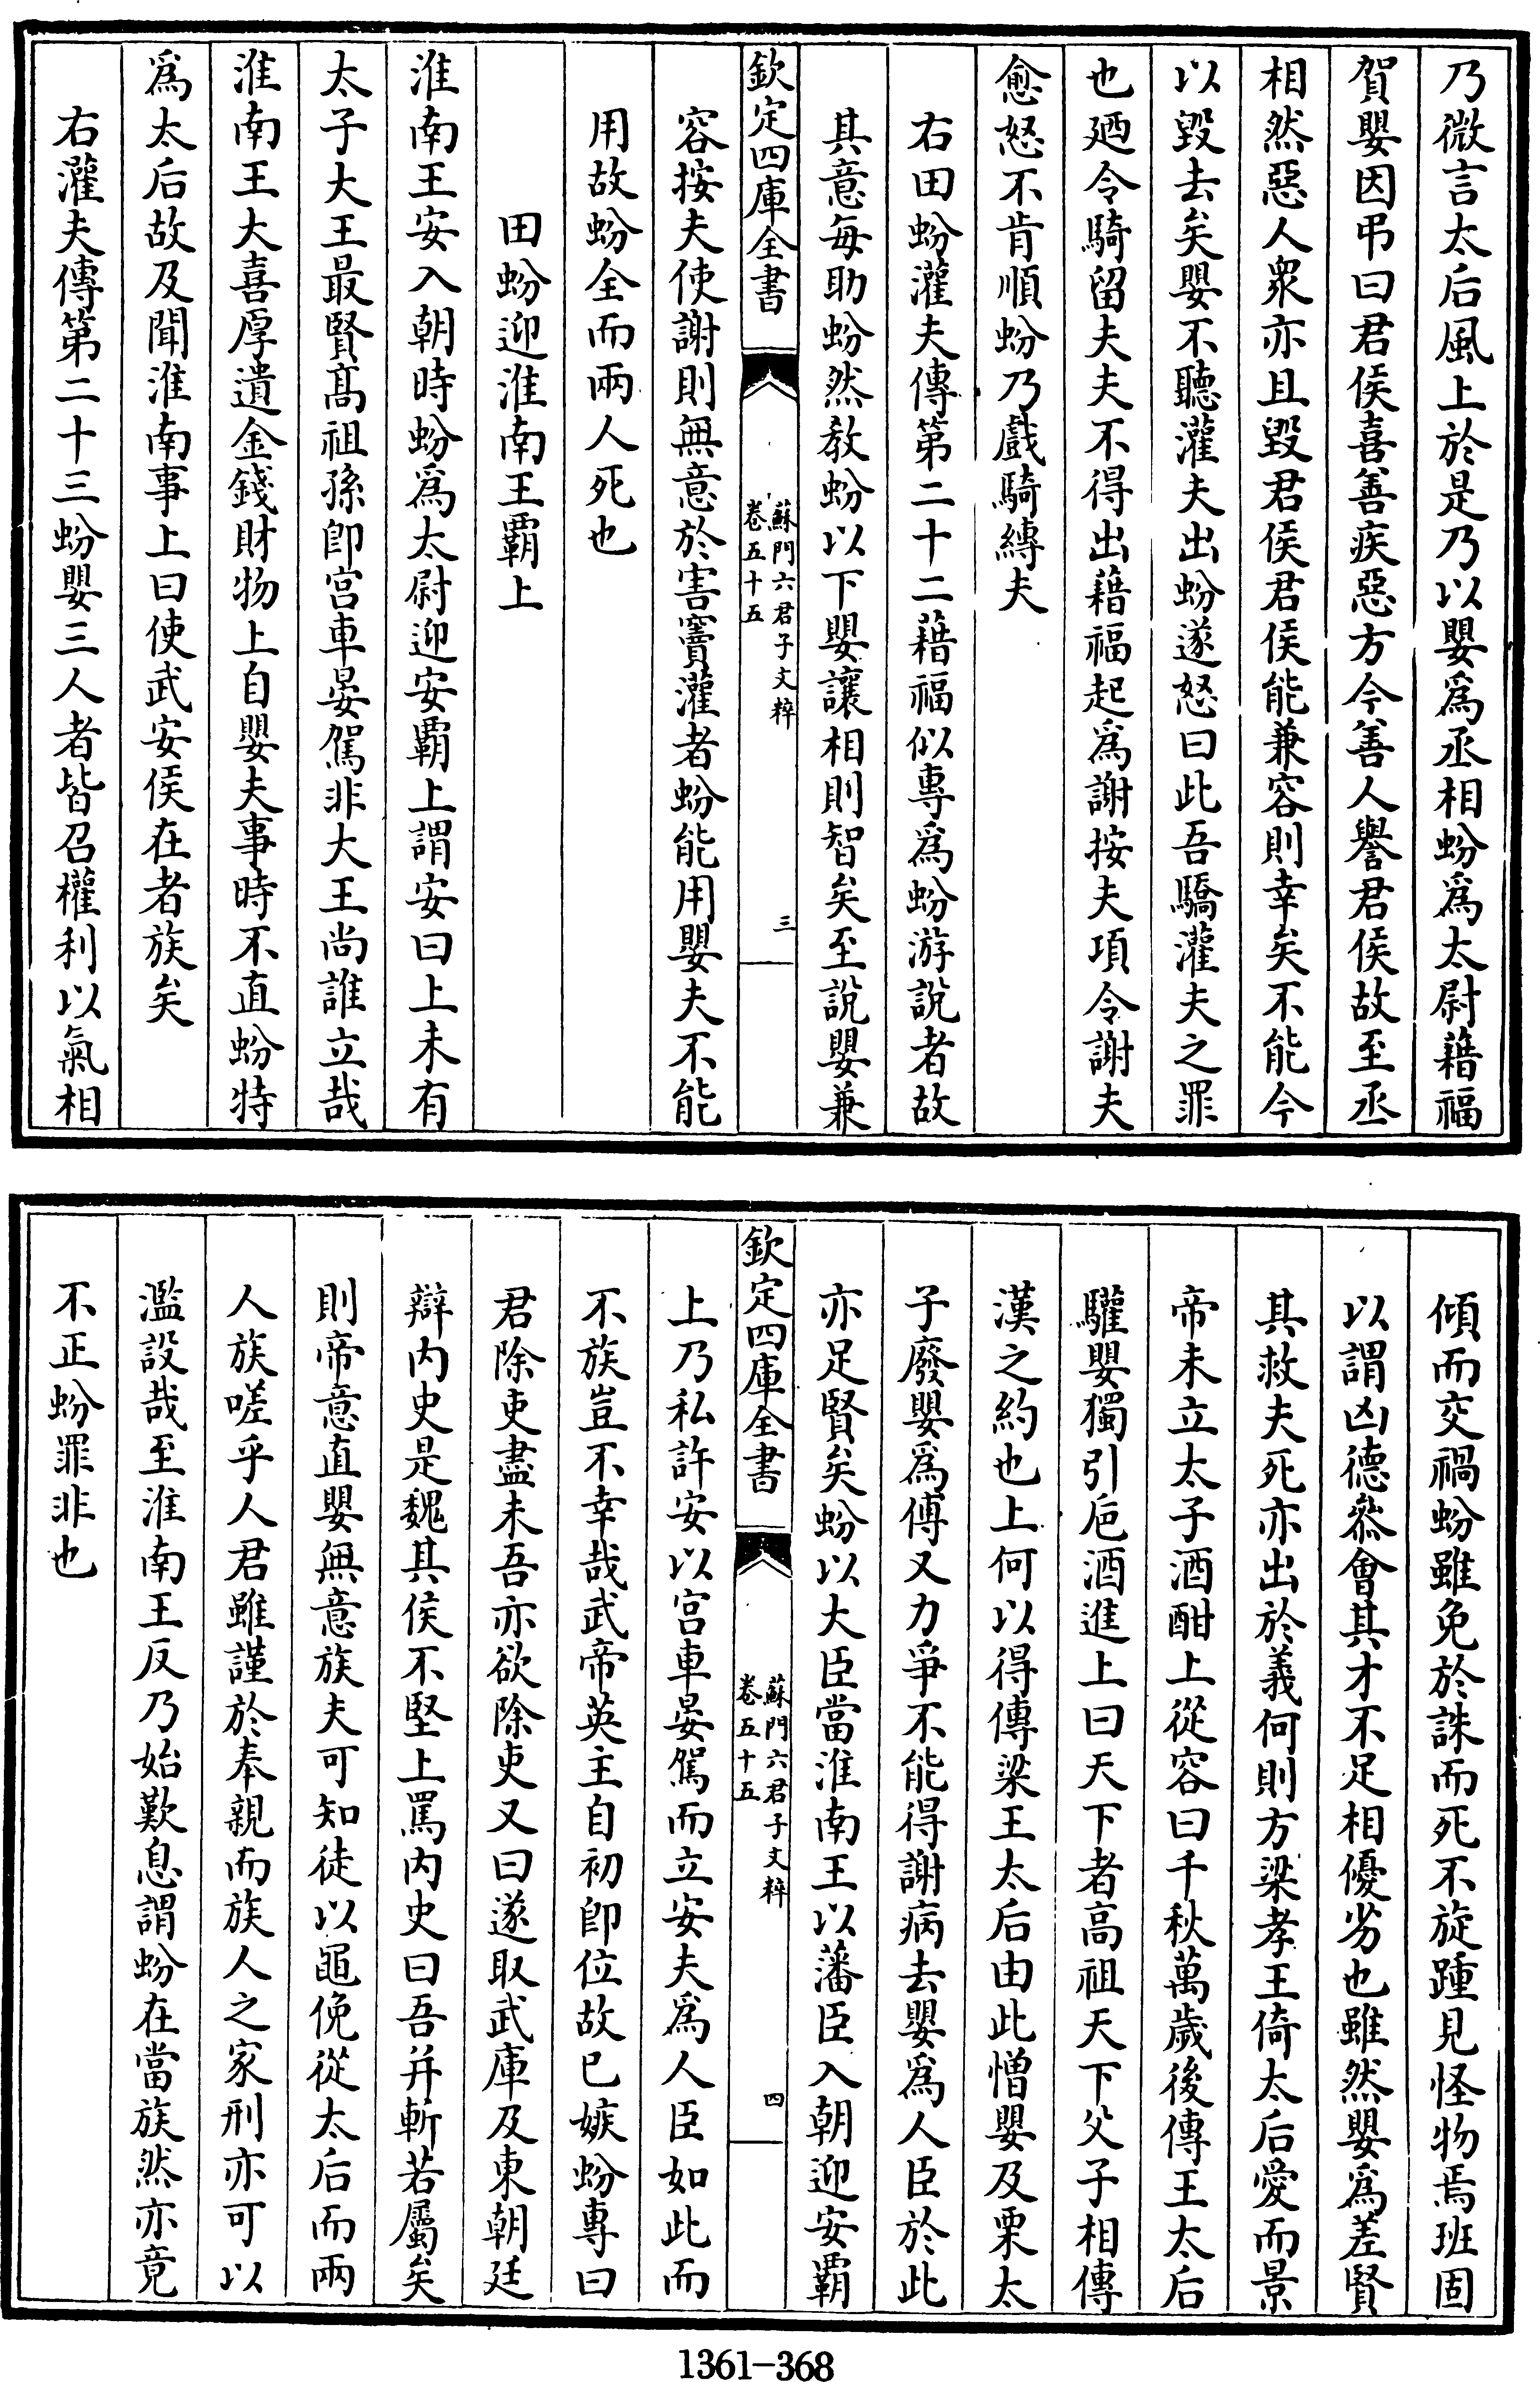 乃微言太后風上於是乃以嬰爲丞相蚡爲太尉藉福
賀嬰因弔曰君侯喜善疾惡方今善人譽君侯故至丞
相然惡人衆亦且毀君侯君侯能兼容則幸矣不能今
以毀去矣嬰不聽灌夫出蚡遂怒曰此吾驕灌夫之罪
也廼令騎留夫夫不得出藉福起爲謝按夫項令謝夫
愈怒不肯順蚡乃戲騎縛夫
右田蚡灌夫傳第二十二藉福似專爲蚡游說者故
其意每助蚡然教蚡以下嬰讓相則智矣至說嬰兼
欽定四庫全書
蘇門六君子文粹
卷五十五
三
容按夫使謝則無意於害竇灌者蚡能用嬰夫不能
用故蚡全而兩人死也
田蚡迎淮南王覇上
淮南王安入朝時蚡爲太尉迎安覇上謂安曰上未有
太子大王最賢髙祖孫卽宫車晏駕非大王尚誰立哉
淮南王大喜厚遺金錢財物上自嬰夫事時不直蚡特
爲太后故及聞淮南事上曰使武安侯在者族矣
右灌夫傳第二十三蚡嬰三人者皆召權利以氣相
傾而交禍蚡雖免於誅而死不旋踵見怪物焉班固
以謂凶德叅會其才不足相優劣也雖然嬰爲差賢
其救夫死亦出於義何則方梁孝王倚太后愛而景
帝未立太子酒酣上從容曰千秋萬歲後傳王太后
驩嬰獨引巵酒進上曰天下者高祖天下父子相傳
漢之約也上何以得傳梁王太后由此憎嬰及栗太
子廢嬰爲傅又力爭不能得謝病去嬰爲人臣於此
亦足賢矣蚡以大臣當淮南王以藩臣入朝迎安覇
欽定四庫全書
蘇門六君子文粹
卷五十五
四
上乃私許安以宫車晏駕而立安夫爲人臣如此而
不族豈不幸哉武帝英主自初卽位故已嫉蚡專曰
君除吏盡未吾亦欲除吏又曰遂取武庫及東朝廷
辯内史是魏其侯不堅上罵内史曰吾并斬若屬矣
則帝意直嬰無意族夫可知徒以黽俛從太后而兩
人族嗟乎人君雖謹於奉親而族人之家刑亦可以
濫設哉至淮南王反乃始歎息謂蚡在當族然亦竟
不正蚡罪非也
1361-368